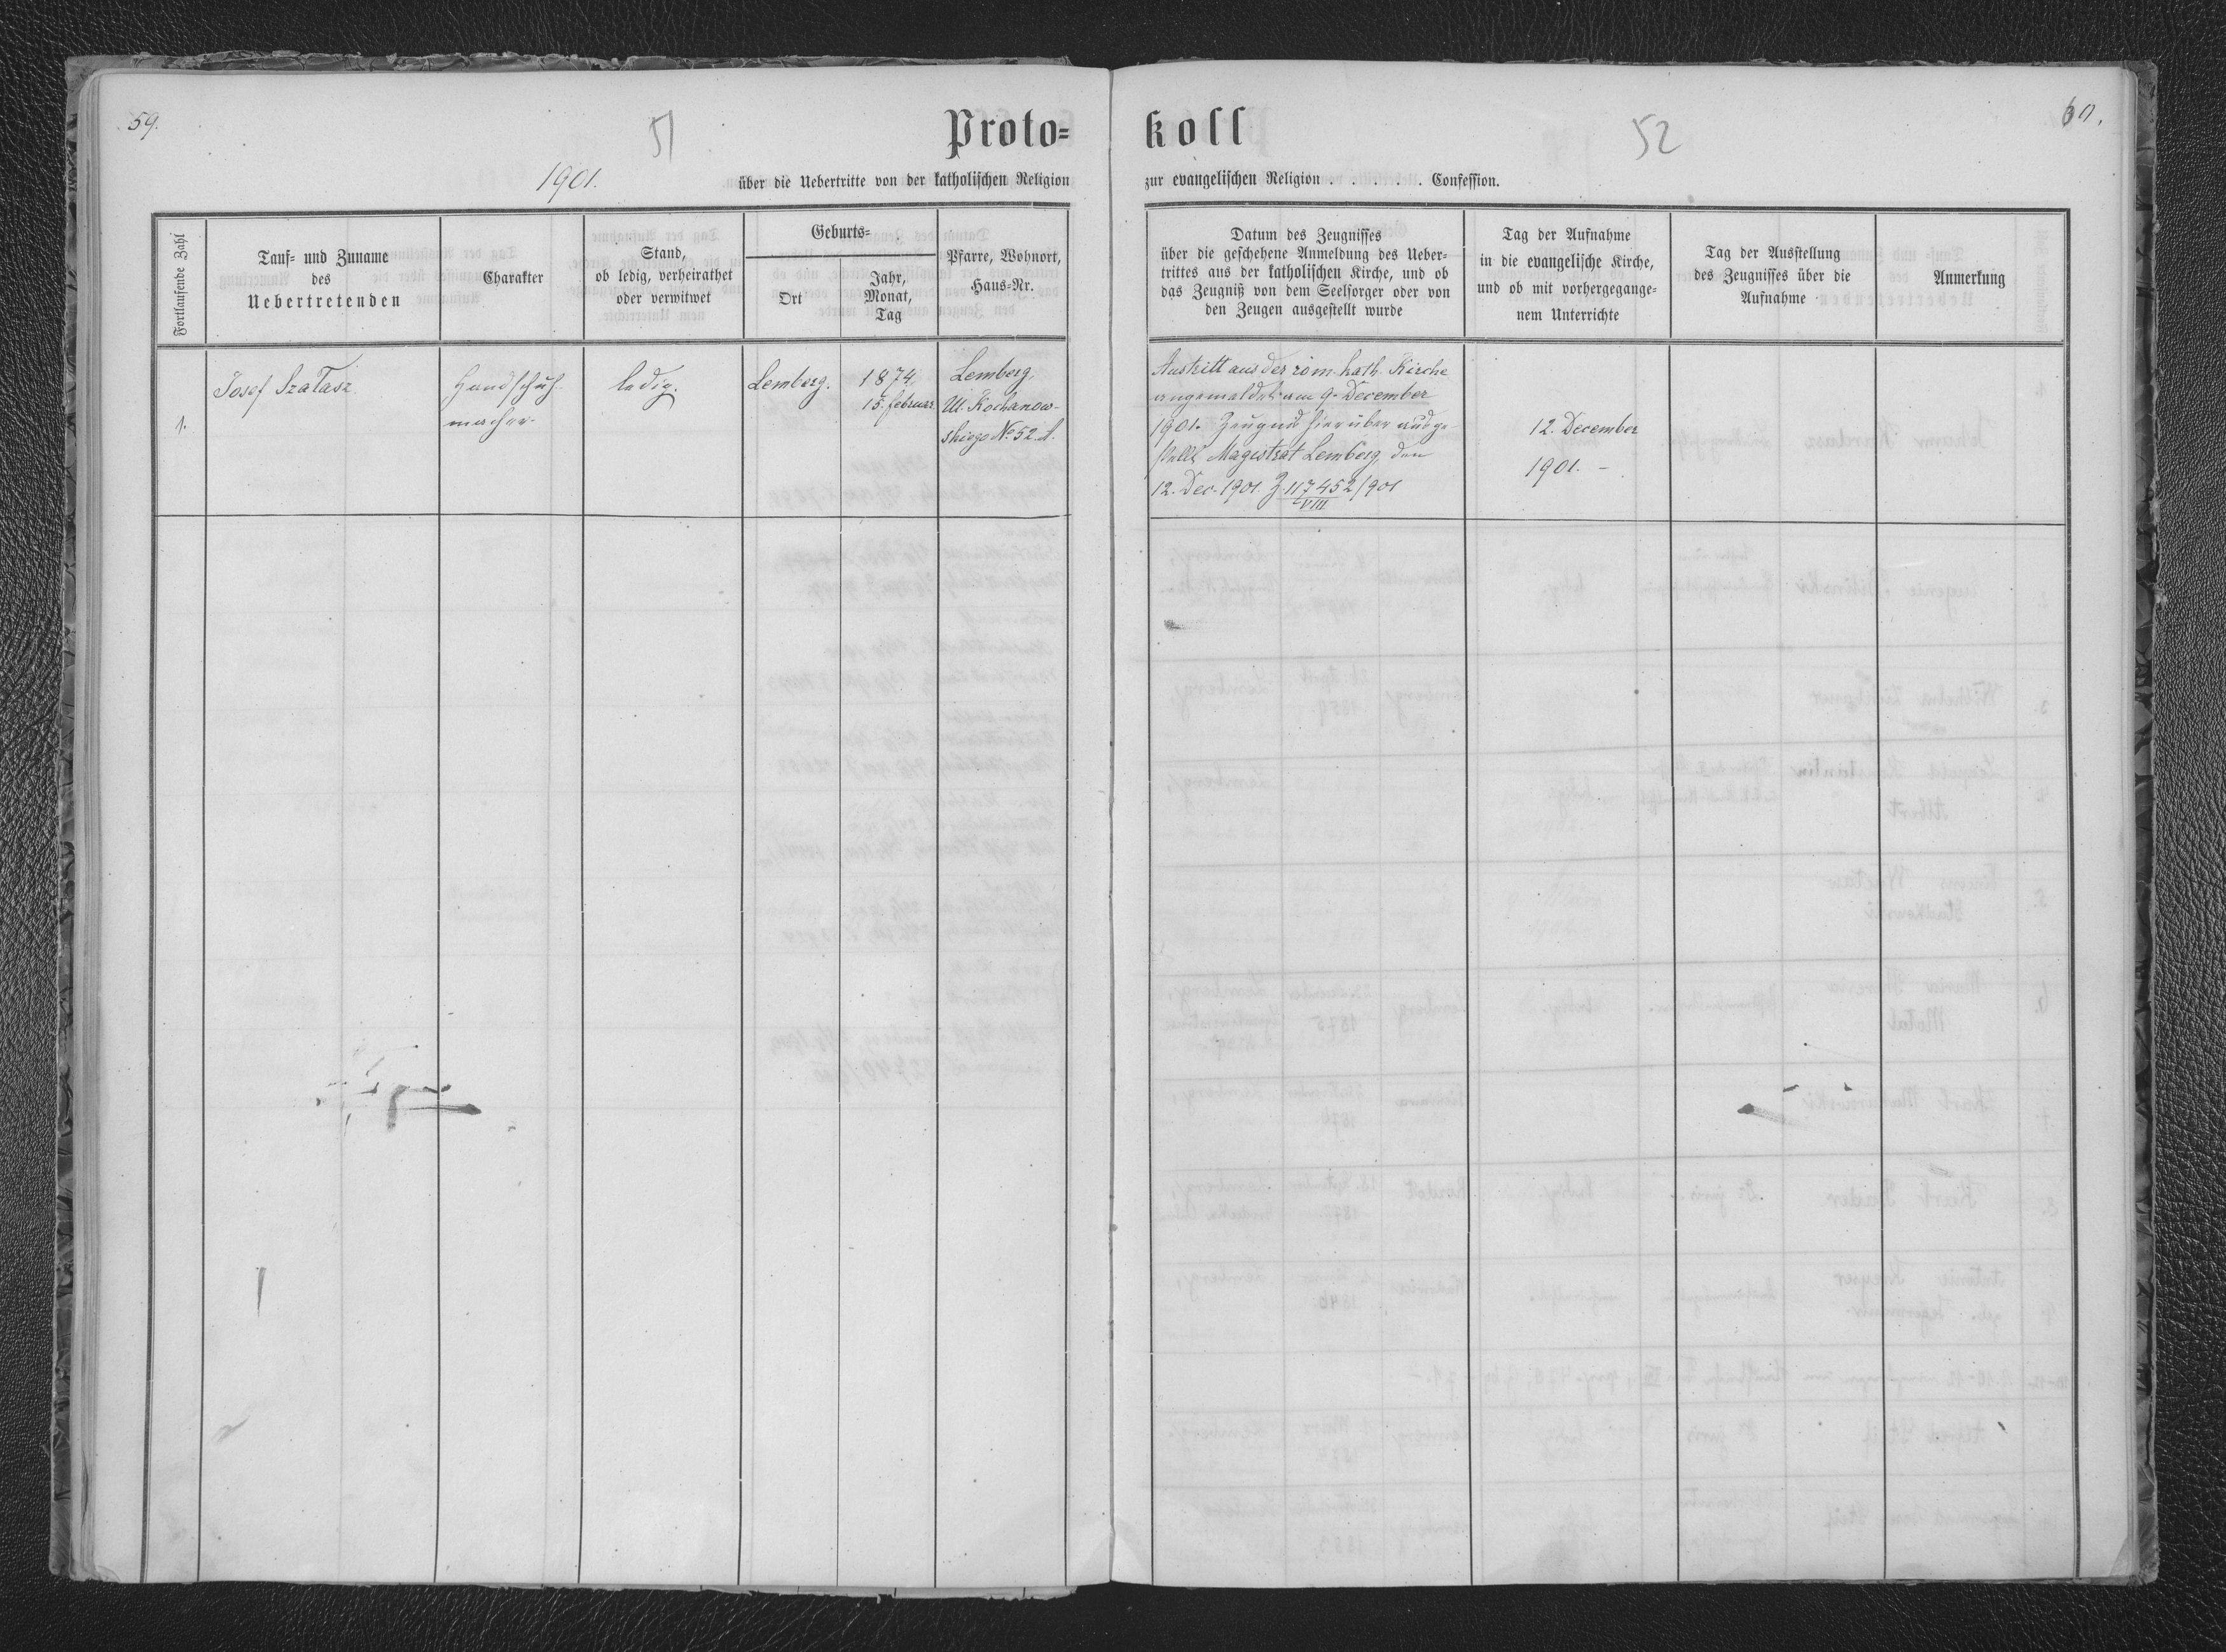 59.
51
Proto=
1901.
über die Uebertritte von der katholischen Religion
Fortlaufende Zahl
Tauf= und Zuname
des
Uebertretenden
Charakter
Stand,
ob ledig, verheirathet
oder verwitwet
Geburts=
Ort
Jahr,
Monat,
Tag
Pfarre, Wohnort,
Haus-Nr.
1.
Josef Szałasz.
Handschuh-
macher.
ledig.
Lemberg.
1874,
15. Februar.
Lemberg,
Ul. Kochanow-
skiego No. 52. A.
koll
52
60.
zur evangelischen Religion . . . . . . Confession.
Datum des Zeugnisses
über die geschehene Anmeldung des Ueber-
trittes aus der katholischen Kirche, und ob
das Zeugniß von dem Seelsorger oder von
den Zeugen ausgestellt wurde
Tag der Aufnahme
in die evangelische Kirche,
und ob mit vorhergegange-
nem Unterrichte
Tag der Ausstellung
des Zeugnisses über die
Aufnahme
Anmerkung
Austritt aus der röm. kath. Kirche
angemeldet am 9. December
1901. Zeugnis hierüber ausge-
stellt Magistrat Lemberg, den
12. Dec. 1901 Z. 117452/901
VIII
12. December
1901. –